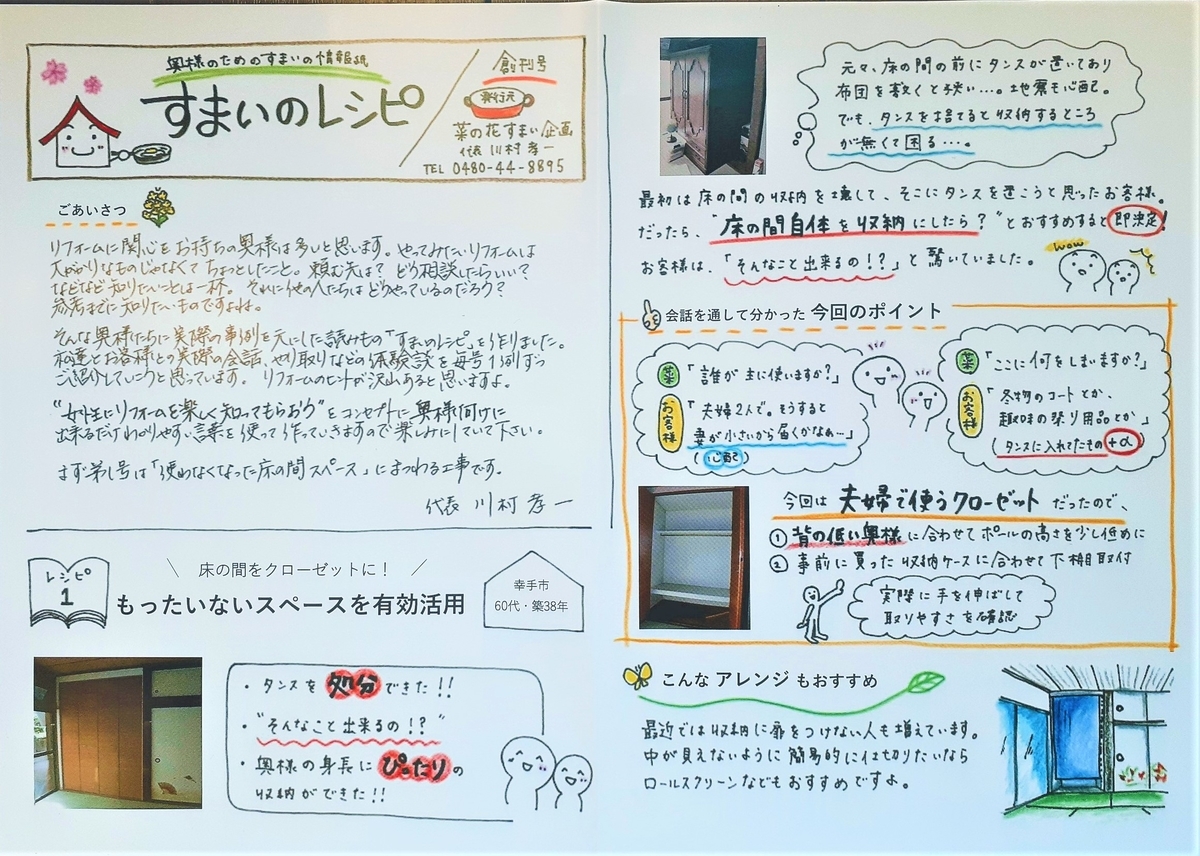 奥様のためのすまいの情報紙
すまいのレシピ
創刊号
発行元
菜の花すまい企画
代表 川村孝一
TEL 0480-44-8895
ごあいさつ
リフォームに関心をお持ちの奥様は多いと思います。やってみたいリフォームは
大がかりなものじゃなくてちょっとしたこと。頼む先は？どう相談したらいい？
などなど知りたいことは一杯。それに他の人たちはどうやっているのだろう？
参考までに知りたいものですよね。
そんな奥様たちに実際の事例を元にした読みもの「すまいのレシピ」を作りました。
私達とお客様との実際の会話、やり取りなどの体験談を毎号1例ずつ
ご紹介していこうと思っています。リフォームのヒントが沢山あると思いますよ。
"女性にリフォームを楽しく知ってもらおう"をコンセプトに奥様向けに
出来るだけわかりやすい言葉を使って作っていきますので楽しみにしていて下さい。
まず第1号は「使わなくなった床の間スペース」にまつわる工事です。
代表 川村孝一
レシピ
1
床の間をクローゼットに！
もったいないスペースを有効活用
幸手市
60代・築38年
・タンスを処分できた!!
・"そんなこと出来るの!?"
・奥様の身長にぴったりの
収納ができた!!
元々、床の間の前にタンスが置いてあり
布団を敷くと狭い…。地震も心配。
でも、タンスを捨てると収納するところ
が無くて困る…。
最初は床の間の収納を壊して、そこにタンスを置こうと思ったお客様。
だったら、"床の間自体を収納にしたら？"とおすすめすると即決定!
お客様は、「そんなこと出来るの!?」と驚いていました。
wow
会話を通して分かった 今回のポイント
菜「誰が主に使いますか?」
お客様「夫婦2人で。そうすると
妻が小さいから届くかなぁ…」
(心配)
菜「ここに何をしまいますか?」
お客様「冬物のコートとか、
趣味の祭り用品とか」
(タンスに入れてたもの+α)
今回は 夫婦で使うクローゼット だったので、
① 背の低い奥様に合わせてポールの高さを少し低めに
② 事前に買った収納ケースに合わせて下棚取付
実際に手を伸ばして
取りやすさを確認
こんな アレンジ もおすすめ
最近では収納に扉をつけない人も増えています。
中が見えないように簡易的に仕切りたいなら
ロールスクリーンなどもおすすめですよ。